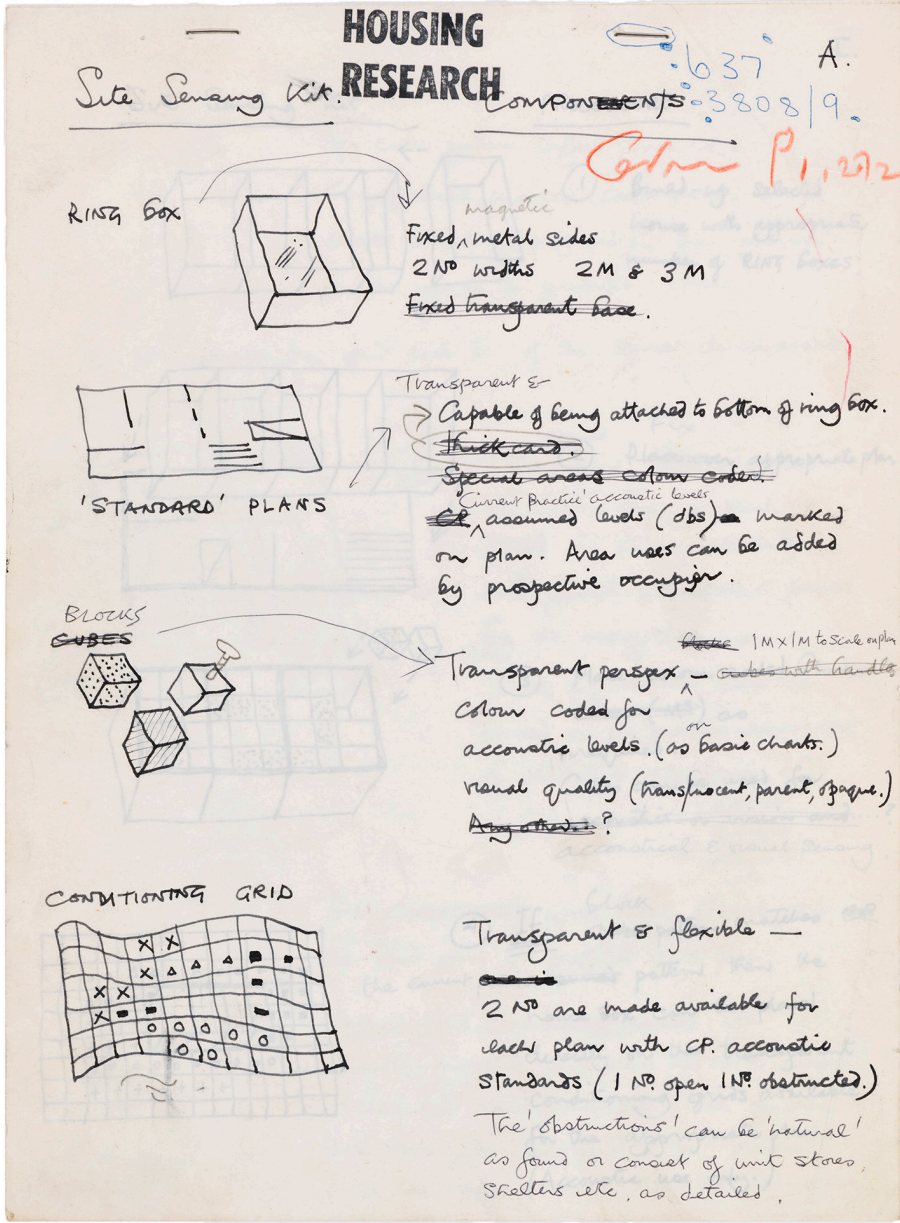 HOUSING
RESEARCH
A.
637
3808/9.
Site Sensing Kit.
COMPONENTS
RING BOX
magnetic
Fixed metal sides
2 No widths 2M & 3M
Fixed transparent base.
'STANDARD' PLANS
Transparent &
Capable of being attached to bottom of ring box.
thick card.
Special areas colour coded.
'Current Practice' accoustic levels
CP assumed levels (dbs) marked
on plan. Area uses can be added
by prospective occupier.
BLOCKS
CUBES
blocks 1M x 1M to scale on plan
Transparent perspex — cubes with handles
colour coded for
on
accoustic levels. (as basic charts.)
visual quality (translucent, parent, opaque.)
Any other...?
CONDITIONING GRID
Transparent & flexible —
2 No are made available for
each plan with CP. accoustic
standards (1 No. open 1 No. obstructed.)
The 'obstructions' can be 'natural'
as found or consist of unit stores,
shelters etc, as detailed.